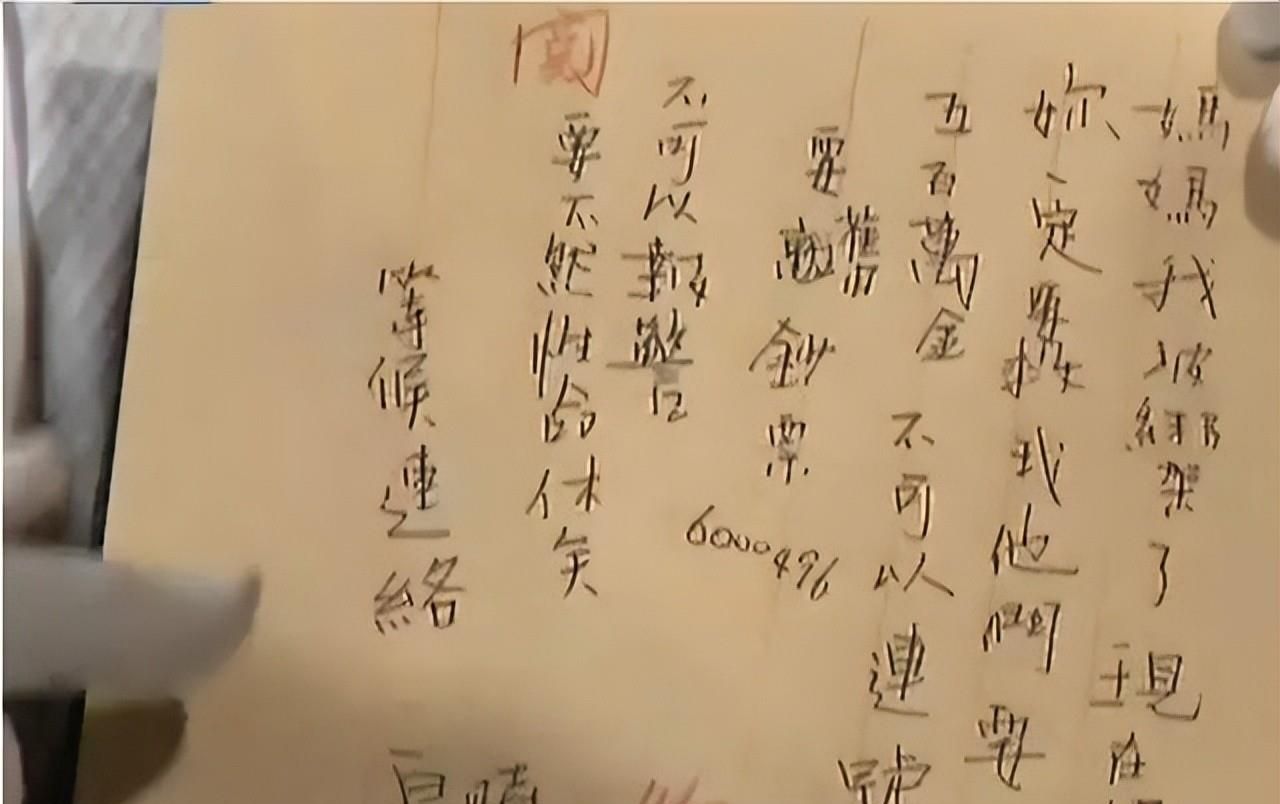 媽媽我被綁架了現在
妳一定要救我他們要
五百萬金不可以連號
要舊鈔票
6000496
不可以報警
要不然性命休矣
等候連絡
白曉